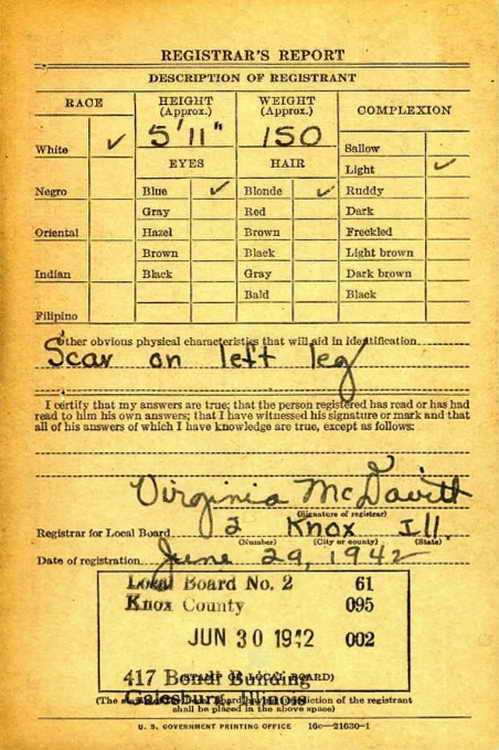 REGISTRAR'S REPORT
DESCRIPTION OF REGISTRANT
RACE
HEIGHT (Approx.)
WEIGHT (Approx.)
COMPLEXION
5'11"
150
White ✓
Sallow
EYES
HAIR
Light ✓
Negro
Blue ✓
Blonde ✓
Ruddy
Gray
Red
Dark
Oriental
Hazel
Brown
Freckled
Brown
Black
Light brown
Indian
Black
Gray
Dark brown
Bald
Black
Filipino
Other obvious physical characteristics that will aid in identification
Scar on left leg
I certify that my answers are true; that the person registered has read or has had
read to him his own answers; that I have witnessed his signature or mark and that
all of his answers of which I have knowledge are true, except as follows:
Virginia McDavitt
(Signature of registrar)
Registrar for Local Board 2 Knox Ill.
(Number) (City or county) (State)
Date of registration June 29, 1942
Local Board No. 2 61
Knox County 095
JUN 30 1942 002
417 Bondi Building
(STAMP OF LOCAL BOARD)
Galesburg, Illinois
(The stamp of the Local Board having jurisdiction of the registrant
shall be placed in the above space)
U. S. GOVERNMENT PRINTING OFFICE 16c—21630-1